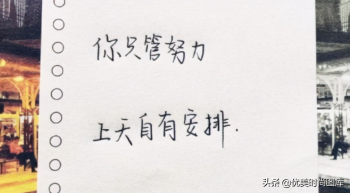 你只管努力
上天自有安排.
头条@优美时尚图库